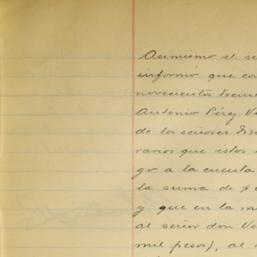 Asimismo el se
informó que co
novecientos trein
Antonio Pérez V
de los señores
rarios que éstos
go a la cuenta
la suma de $
y que en la m
al señor don Ve
mil pesos), al